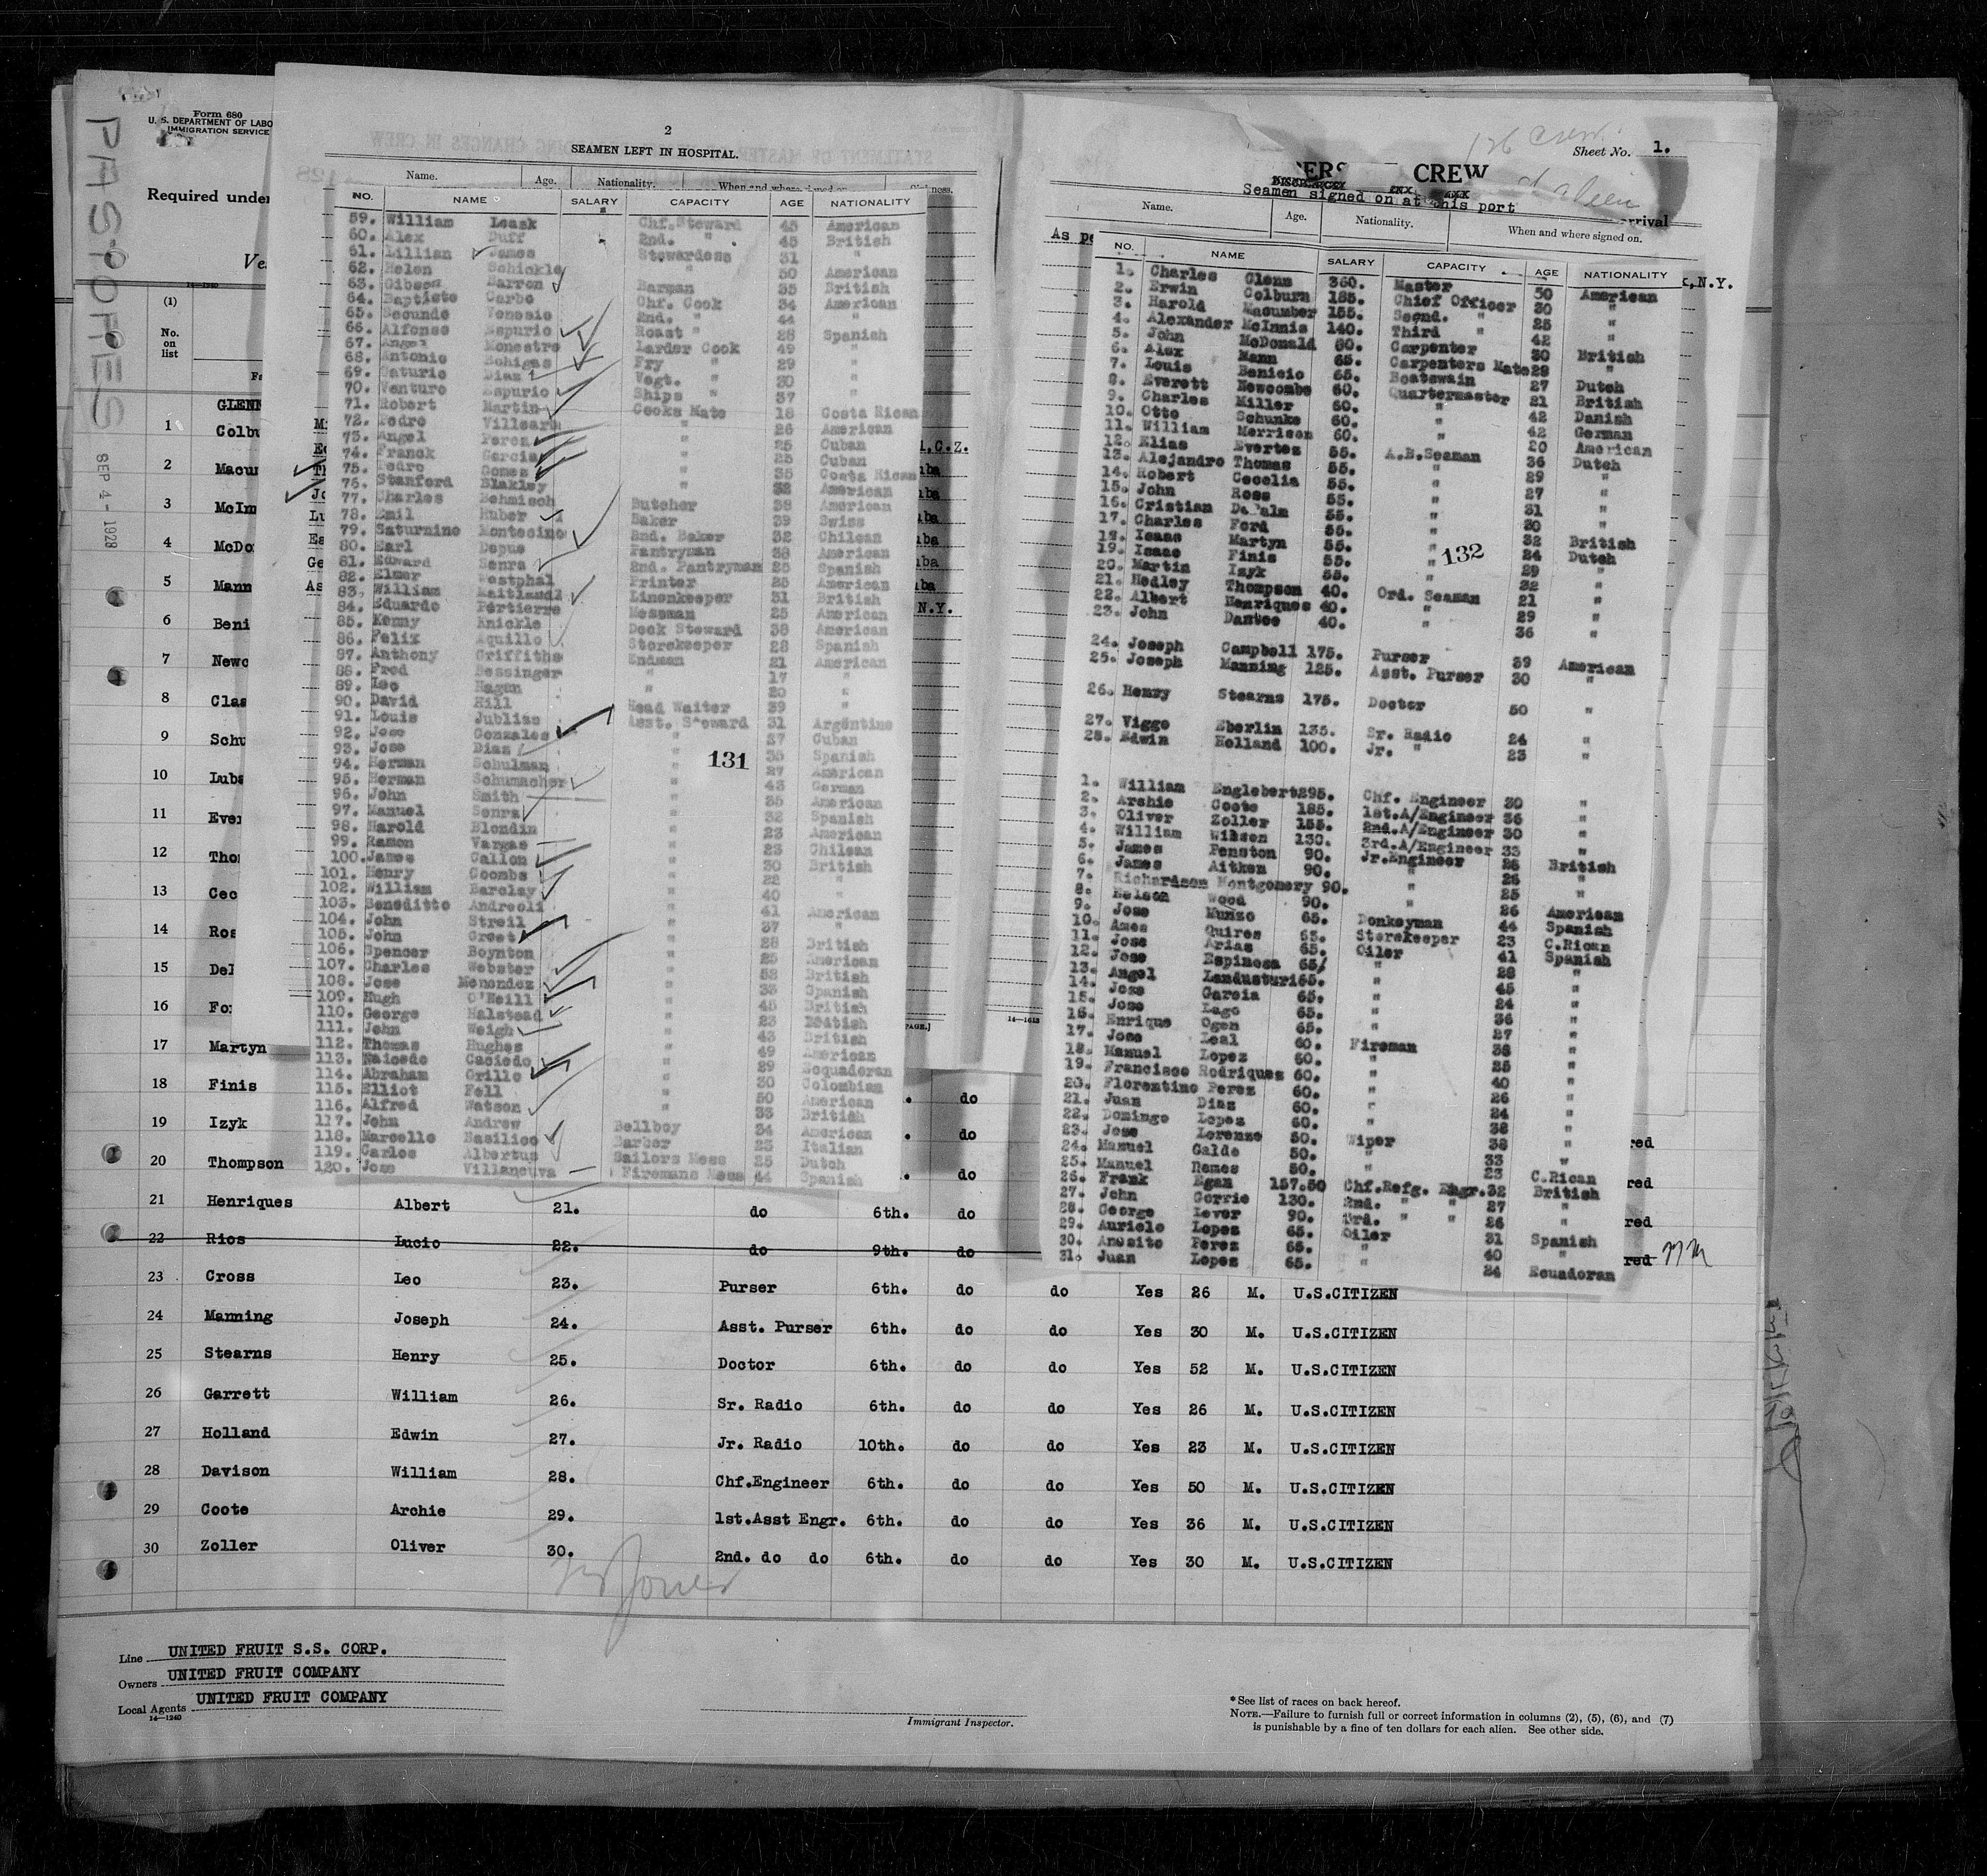 PASTORES
SEP 4 - 1928
Form 680
U. S. DEPARTMENT OF LABO
IMMIGRATION SERVICE
Required under
Ve
(1)
No.
on
list
GLENN
1 Colbu
2 Macum
3 McInn
4 McDo
5 Mann
6 Beni
7 Newc
8 Clas
9 Schu
10 Luba
11 Ever
12 Tho
13 Cec
14 Ros
15 Del
16 Fo
17 Martyn
18 Finis do
19 Izyk do
20 Thompson do
21 Henriques Albert 21. do 6th. do
22 Rios Lucio 22. do 9th. do
23 Cross Leo 23. Purser 6th. do do Yes 26 M. U.S.CITIZEN
24 Manning Joseph 24. Asst. Purser 6th. do do Yes 30 M. U.S.CITIZEN
25 Stearns Henry 25. Doctor 6th. do do Yes 52 M. U.S.CITIZEN
26 Garrett William 26. Sr. Radio 6th. do do Yes 26 M. U.S.CITIZEN
27 Holland Edwin 27. Jr. Radio 10th. do do Yes 23 M. U.S.CITIZEN
28 Davison William 28. Chf.Engineer 6th. do do Yes 50 M. U.S.CITIZEN
29 Coote Archie 29. 1st.Asst Engr. 6th. do do Yes 36 M. U.S.CITIZEN
30 Zoller Oliver 30. 2nd. do do 6th. do do Yes 30 M. U.S.CITIZEN
Line UNITED FRUIT S.S. CORP.
Owners UNITED FRUIT COMPANY
Local Agents UNITED FRUIT COMPANY
14-1240
Immigrant Inspector.
* See list of races on back hereof.
NOTE.—Failure to furnish full or correct information in columns (2), (5), (6), and (7)
is punishable by a fine of ten dollars for each alien. See other side.
2
SEAMEN LEFT IN HOSPITAL.
Name. Age. Nationality. When and where signed on
NO. NAME SALARY CAPACITY AGE NATIONALITY
59. William Leask Chf.Steward 45 American
60. Alex Duff 2nd. " 45 British
61. Lillian James Stewardess 31 "
62. Helen Schickle " 50 American
63. Gibson Barron Barman 35 British
64. Baptiste Carbo Chf. Cook 34 American
65. Secundo Venosio 2nd. " 44 "
66. Alfonso Espurio Roast " 28 Spanish
67. Angel Monestro Larder Cook 49 "
68. Antonio Bohigas Fry " 29 "
69. Saturio Diaz Vegt. " 30 "
70. Venturo Espurio Ships " 37 "
71. Robert Martin Cooks Mate 18 Costa Rican
72. Pedro Villeare " 26 American
73. Angel Perez " 25 Cuban
74. Franck Garcia " 25 Cuban
75. Pedro Gomez " 35 Costa Rican
76. Stanford Blakley " 32 American
77. Charles Behmisch Butcher 38 American
78. Emil Huber Baker 39 Swiss
79. Saturnino Montecino 2nd. Baker 32 Chilean
80. Earl Depue Pantryman 38 American
81. Edward Senra 2nd. Pantryman 25 Spanish
82. Elmer Westphal Printer 25 American
83. William Maitland Linenkeeper 31 British
84. Eduardo Pertierre Messman 25 American
85. Kenny Knickle Deck Steward 38 American
86. Felix Aquillo Storekeeper 28 Spanish
87. Anthony Griffiths Endman 21 American
88. Fred Bessinger " 17 "
89. Leo Hagan " 20 "
90. David Hill Head Waiter 39 "
91. Louis Jublias Asst. Steward 31 Argentine
92. Jose Gonzales " 37 Cuban
93. Jose Diaz " 35 Spanish
94. Herman Schulman " 27 American
95. Herman Schumacher " 43 German
96. John Smith " 35 American
97. Manuel Senra " 32 Spanish
98. Harold Blondin " 23 American
99. Ramon Vargas " 23 Chilean
100. James Callon " 30 British
101. Henry Coombs " 22 "
102. William Barclay " 40 "
103. Beneditto Andreoli " 41 American
104. John Streil " 37 "
105. John Greet " 28 British
106. Spencer Boynton " 25 American
107. Charles Webster " 52 British
108. Jose Menendez " 33 Spanish
109. Hugh O'Neill " 45 British
110. George Halstead " 23 British
111. John Weigh " 43 British
112. Thomas Hughes " 49 American
113. Naicedo Caciedo " 29 Ecquadoran
114. Abraham Grillo " 30 Colombian
115. Elliot Fell " 50 American
116. Alfred Watson " 33 British
117. John Andrew Bellboy 34 American
118. Marcello Basilico Barber 23 Italian
119. Carlos Albertus Sailors Mess 25 Dutch
120. Jose Villanueva Firemans Mess 44 Spanish
131
126 Crew
Sheet No. 1.
CREW
Seamen signed on at this port
Name. Age. Nationality. When and where signed on.
NO. NAME SALARY CAPACITY AGE NATIONALITY
1. Charles Glenn 360. Master 50 American
2. Erwin Colburn 185. Chief Officer 30 "
3. Harold Macumber 155. Second. " 25 "
4. Alexander McInnis 140. Third " 42 "
5. John McDonald 80. Carpenter 30 British
6. Alex Mann 65. Carpenters Mate 28 "
7. Louis Benicio 65. Boatswain 27 Dutch
8. Everett Newcombe 60. Quartermaster 21 British
9. Charles Miller 60. " 42 Danish
10. Otto Schunke 60. " 42 German
11. William Merrison 60. " 20 American
12. Elias Evertsz 55. A.B.Seaman 36 Dutch
13. Alejandro Thomas 55. " 29 "
14. Robert Cecelia 55. " 27 "
15. John Ross 55. " 31 "
16. Cristian DePalm 55. " 30 "
17. Charles Ford 55. " 32 British
18. Isaac Martyn 55. " 24 Dutch
19. Isaac Finis 55. " 29 "
20. Martin Izyk 55. " 32 "
21. Hedley Thompson 40. Ord. Seaman 21 "
22. Albert Henriques 40. " 29 "
23. John Dantoe 40. " 36 "
24. Joseph Campbell 175. Purser 39 American
25. Joseph Manning 125. Asst. Purser 30 "
26. Henry Stearns 175. Doctor 50 "
27. Viggo Eberlin 135. Sr. Radio 24 "
28. Edwin Holland 100. Jr. " 23 "
1. William Englebert 295. Chf. Engineer 30 "
2. Archie Coote 185. 1st.A/Engineer 36 "
3. Oliver Zoller 155. 2nd.A/Engineer 30 "
4. William Wilson 130. 3rd.A/Engineer 33 "
5. James Penston 90. Jr.Engineer 26 British
6. James Aitken 90. " 26 "
7. Richardson Montgomery 90. " 25 "
8. Nelson Wood 90. " 26 American
9. Jose Munzo 65. Donkeyman 44 Spanish
10. Amos Quiros 65. Storekeeper 23 C.Rican
11. Jose Arias 65. Oiler 41 Spanish
12. Jose Espinosa 65/ " 28 "
13. Angel Landusturi 65. " 45 "
14. Jose Garcia 65. " 24 "
15. Jose Lago 65. " 36 "
16. Enrique Ogen 65. " 27 "
17. Jose Leal 60. Fireman 38 "
18. Manuel Lopez 60. " 25 "
19. Francisco Rodriques 60. " 40 "
20. Florentino Perez 60. " 26 "
21. Juan Diaz 60. " 24 "
22. Domingo Lopez 60. " 38 "
23. Jose Lorenzo 50. Wiper 38 "
24. Manuel Galde 50. " 33 "
25. Manuel Nemes 50. " 23 C.Rican
26. Frank Egan 157.50 Chf.Refg. Engr. 32 British
27. John Gorrie 130. 2nd. " " 27 "
28. George Lever 90. 3rd. " " 26 "
29. Auriele Lopez 65. Oiler 31 Spanish
30. Anosito Perez 65. " 40 "
31. Juan Lopez 65. " 24 Ecuadoran
132